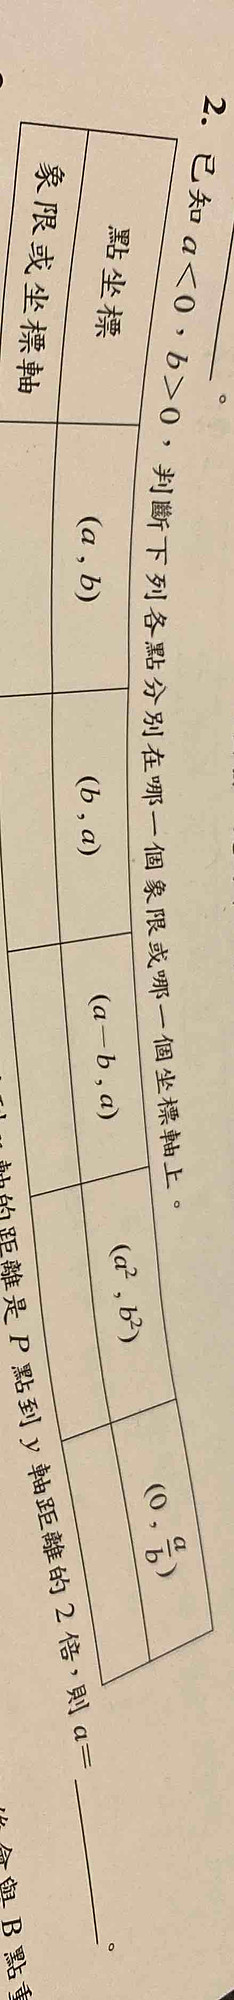 。
2. 已知 a<0,b>0,判斷下列各點分別在哪一個象限或哪一個坐標軸上。
點坐標 (a , b) (b , a) (a－b , a) (a², b²) (0 , a/b)
象限或坐標軸
軸的距離是 P 點到 y 軸距離的 2 倍,則 a= 。
會與 B 點重